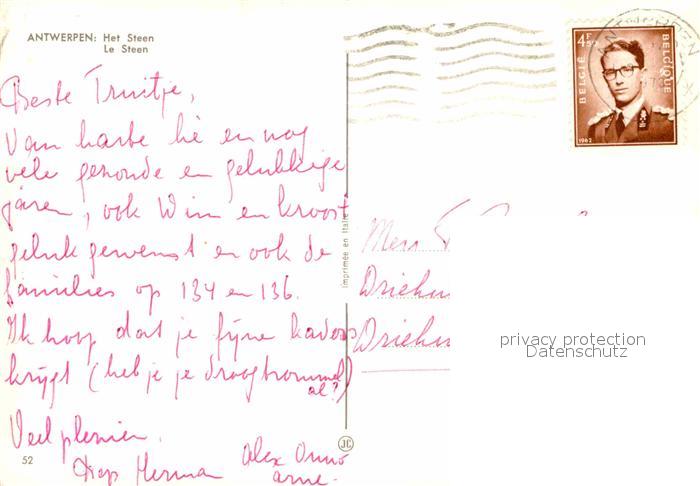 ANTWERPEN: Het Steen
Le Steen
Beste Truitje,
Van harte hè en nog
vele gezonde en gelukkige
jaren, ook Wim en kroost
geluk gewenst en ook de
families op 134 en 136.
Ik hoop dat je fijne kado's
krijgt (heb je je droogtrommel
al?)
Veel plezier.
Diep Herman Alex Onno
Arne.
52
imprimée en Italie
JC
4F50
BELGIË
BELGIQUE
1962
ANTWERPEN
Driehui
Driehui
privacy protection
Datenschutz